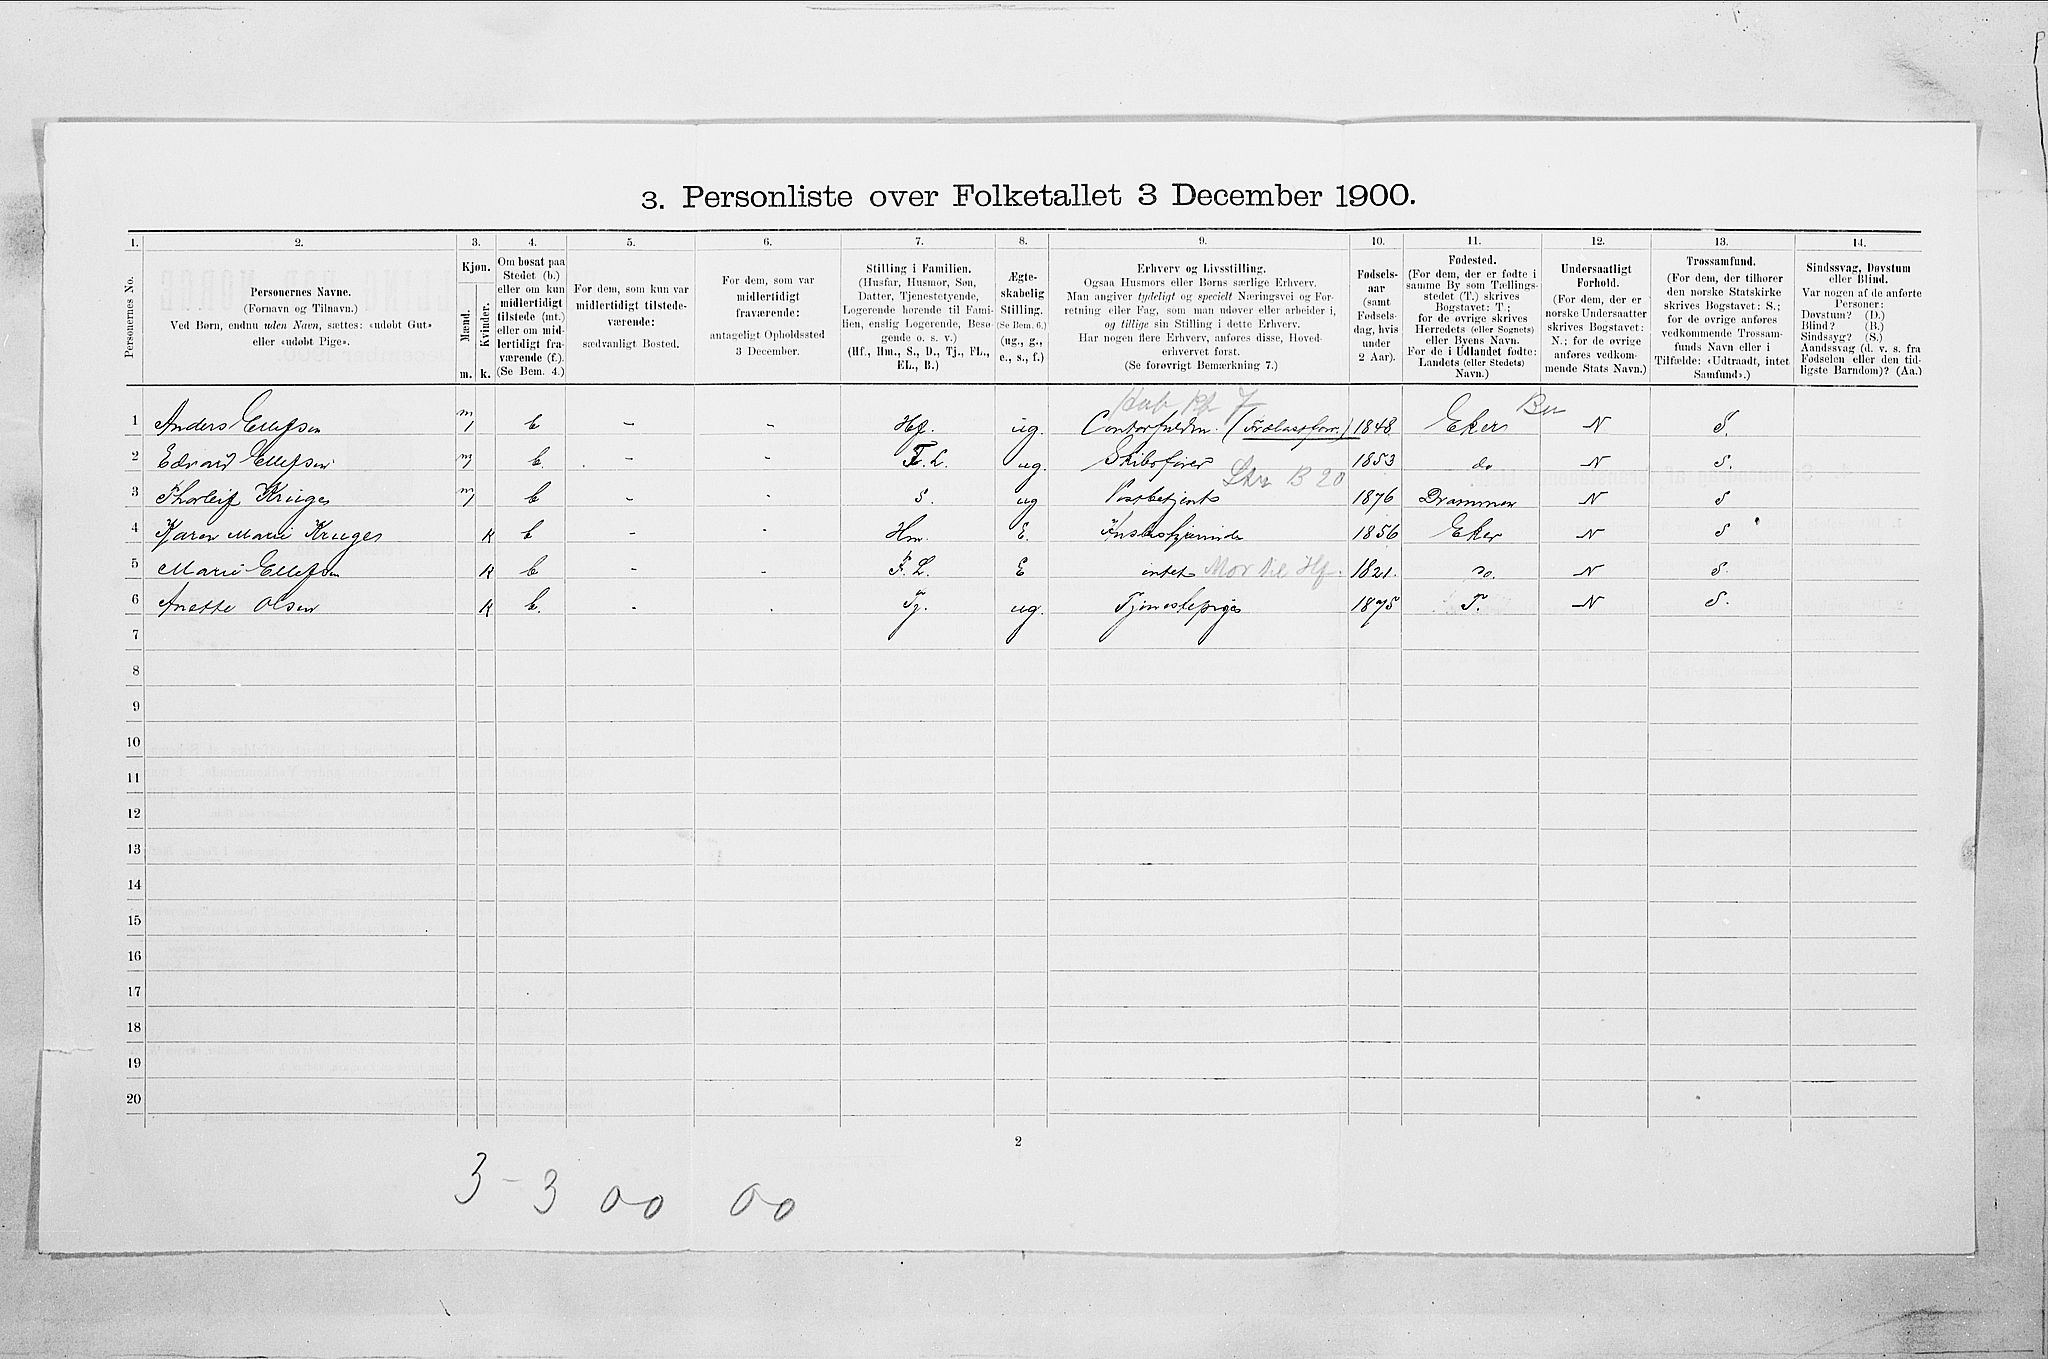 3. Personliste over Folketallet 3 December 1900.
1. 2. 3. 4. 5. 6. 7. 8. 9. 10. 11. 12. 13. 14.
Personernes No.
Personernes Navne.
(Fornavn og Tilnavn.)
Ved Børn, endnu uden Navn, sættes: «udøbt Gut»
eller «udøbt Pige».
Kjøn.
Mænd.
Kvinder.
m. k.
Om bosat paa
Stedet (b.)
eller om kun
midlertidigt
tilstede (mt.)
eller om mid-
lertidigt fra-
værende (f.).
(Se Bem. 4.)
For dem, som kun var
midlertidigt tilstede-
værende:
sædvanligt Bosted.
For dem, som var
midlertidigt
fraværende:
antageligt Opholdssted
3 December.
Stilling i Familien.
(Husfar, Husmor, Søn,
Datter, Tjenestetyende,
Logerende hørende til Fami-
lien, enslig Logerende, Besø-
gende o. s. v.)
(Hf., Hm., S., D., Tj., FL.,
EL., B.)
Ægte-
skabelig
Stilling.
(Se Bem. 6.)
(ug., g.,
e., s., f.)
Erhverv og Livsstilling.
Ogsaa Husmors eller Børns særlige Erhverv.
Man angiver tydeligt og specielt Næringsvei og For-
retning eller Fag, som man udøver eller arbeider i,
og tillige sin Stilling i dette Erhverv.
Har nogen flere Erhverv, anføres disse, Hoved-
erhvervet først.
(Se forøvrigt Bemærkning 7.)
Fødsels-
aar
(samt
Fødsels-
dag, hvis
under
2 Aar).
Fødested.
(For dem, der er fødte i
samme By som Tællings-
stedet (T.) skrives
Bogstavet: T;
for de øvrige skrives
Herredets (eller Sognets)
eller Byens Navn.
For de i Udlandet fødte:
Landets (eller Stedets)
Navn.)
Undersaatligt
Forhold.
(For dem, der er
norske Undersaatter
skrives Bogstavet:
N.; for de øvrige
anføres vedkom-
mende Stats Navn.)
Trossamfund.
(For dem, der tilhører
den norske Statskirke
skrives Bogstavet: S.;
for de øvrige anføres
vedkommende Trossam-
funds Navn eller i
Tilfælde: «Udtraadt, intet
Samfund».)
Sindssvag, Døvstum
eller Blind.
Var nogen af de anførte
Personer:
Døvstum? (D.)
Blind? (B.)
Sindssyg? (S.)
Aandssvag (d. v. s. fra
Fødselen eller den tid-
ligste Barndom)? (Aa.)
1 Anders Ellefsen m b - - Hf. ug. 1848 Eker Bu N S.
2 Edvard Ellefsen m b. - - F. L. ug. Skibsfører 1853 do N S.
B 20
3 Thorleif Kruges m b - - S. ug Postbetjent 1876 Drammen N S
4 Karen Marie Kruges k b - - Hm. E. 1856 Eker N S
5 Marie Ellefsen k b - - F. L. E intet Mor til Hf. 1821. do. N S.
6 Anette Olsen k b. - . Tj. ug. Tjenestepige 1875 T. N S.
7
8
9
10
11
12
13
14
15
16
17
18
19
20
2
3 - 3 00 00